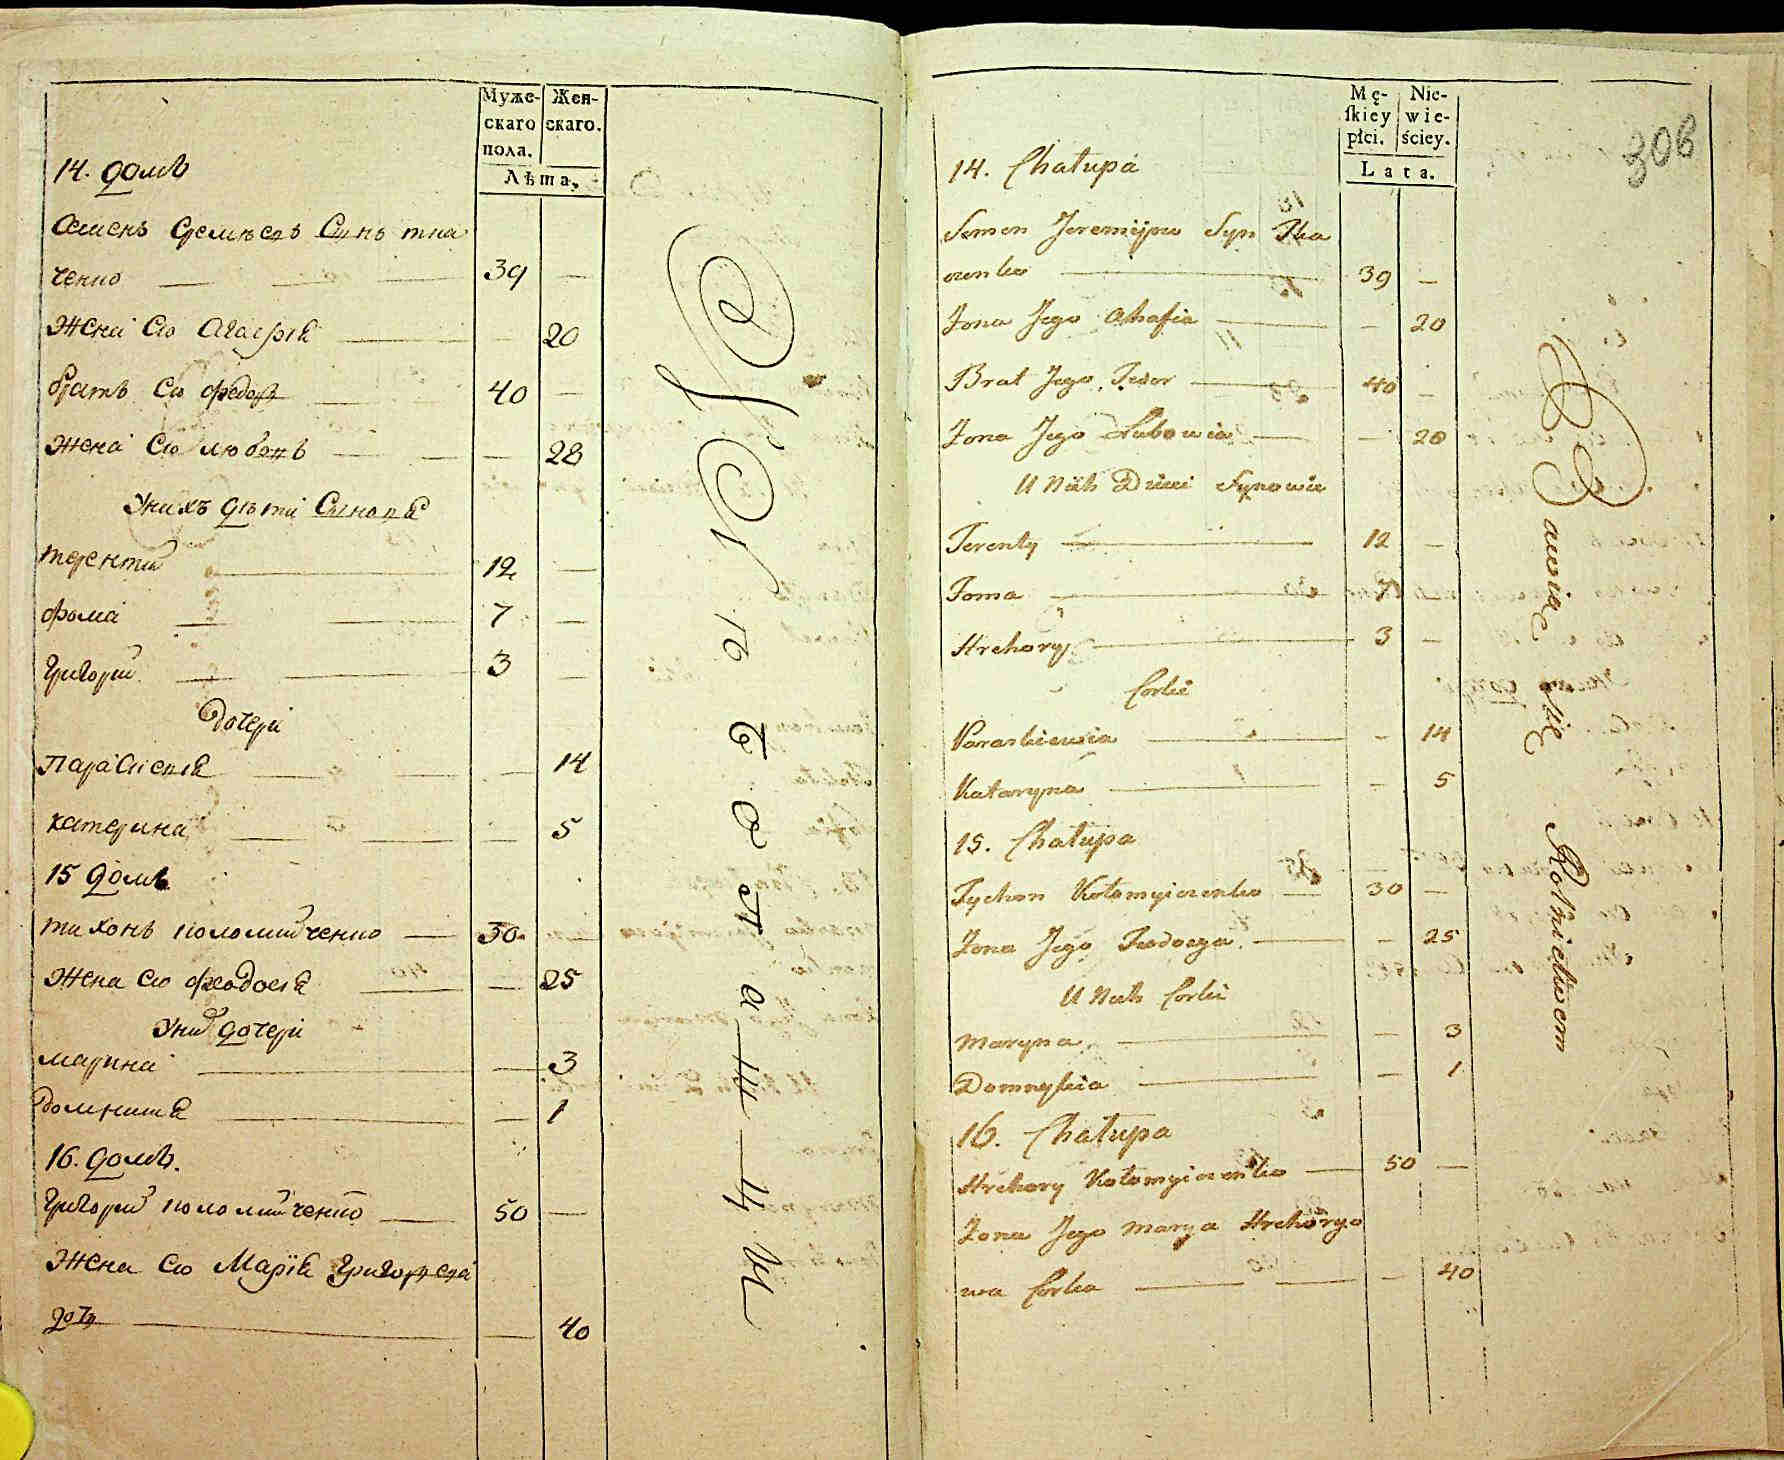 Муже-
скаго
пола.
Жен-
скаго.
Лѣта.
14. домъ
Семенъ Еремѣевъ Сынъ тка
ченко — 39 —
Жена Ево Агафія — 20
братъ Ево Федоръ — 40 —
Жена Ево любовь — 28
Унихъ дѣти Сыновя
терентій — 12 —
фома — 7 —
Григорій — 3 —
дочери
Параскевія — 14
катерина — 5
15 домъ
тихонъ коломийченко — 30 —
Жена Ево феодосія — 25
Унихъ дочери
марина — 3
домникія — 1
16. домъ.
Григорій коломийченко — 50 —
Жена Ево Марія Григорьева
дочь — 40
Работаши
Mę-
skiey
płci.
Nie-
wie-
ściey.
Lata.
306
14. Chałupa
Semen Jeremijew Syn Tka
czenko — 39 —
Zona Jego Ahafia — 20
Brat Jego Fedor — 40 —
Zona Jego Lubowia — 28
U Nich Dzieci Synowie
Terenty — 12 —
Foma — 7 —
Hrehory — 3 —
Corki
Paraskiewia — 14
Kataryna — 5
15. Chałupa
Tychon Kołomyiczenko — 30 —
Zona Jego Feodozya — 25
U Nich Corki
Maryna — 3
Domnykia — 1
16. Chałupa
Hrehory Kołomyiczenko — 50 —
Zona Jego Marya Hrehoryo
wa Corka — 40
Bawią się Rolnictwem